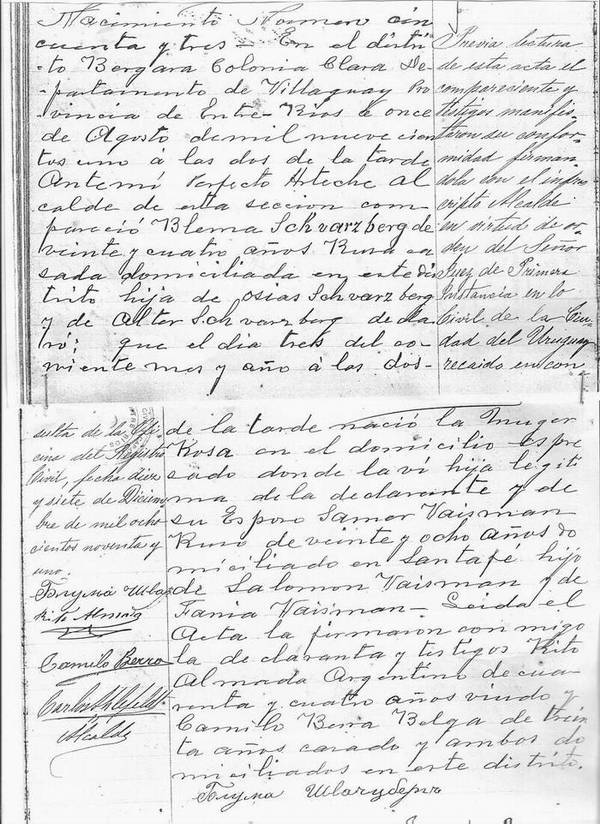 Nacimiento Numero cin
cuenta y tres — En el distri
to Bergara Colonia Clara De
partamento de Villaguay Pro
vincia de Entre-Rios á once
de Agosto de mil nuevecien
tos uno á las dos de la tarde
Antemí Perfecto Arteche Al
calde de esta seccion com
pareció Blema Schvarzberg de
veinte y cuatro años Rusa ca
sada domiciliada en este dis
trito hija de Osias Schvarzberg
y de Alter Schvarzberg decla
ró: que el dia tres del co
rriente mes y año á las dos
de la tarde nació la muger
Rosa en el domicilio espre
sado donde la ví hija legiti
ma de la declarante y de
su Esposo Samor Vaisman
Ruso de veinte y ocho años do
miciliado en Santafé hijo
de Salomon Vaisman y de
Tania Vaisman — Leida el
Acta la firmaron con migo
la declaranta y testigos Rito
Almada Argentino de cua
renta y cuatro años viudo y
Camilo Berra Belga de trein
ta años casado y ambos do
miciliados en este distrito.
Previa lectura
de esta acta el
compareciente y
testigos manifes
taron su confor
midad firman
dola con el infras
cripto Alcalde
en virtud de or
den del Señor
Juez de Primera
Instancia en lo
Civil de la Ciu
dad del Uruguay
recaido en con
sulta de la Ofi
cina del Registro
Civil, fecha diez
y siete de Diciem
bre de mil ocho
cientos noventa y
uno.
Camilo Berra
Alcalde